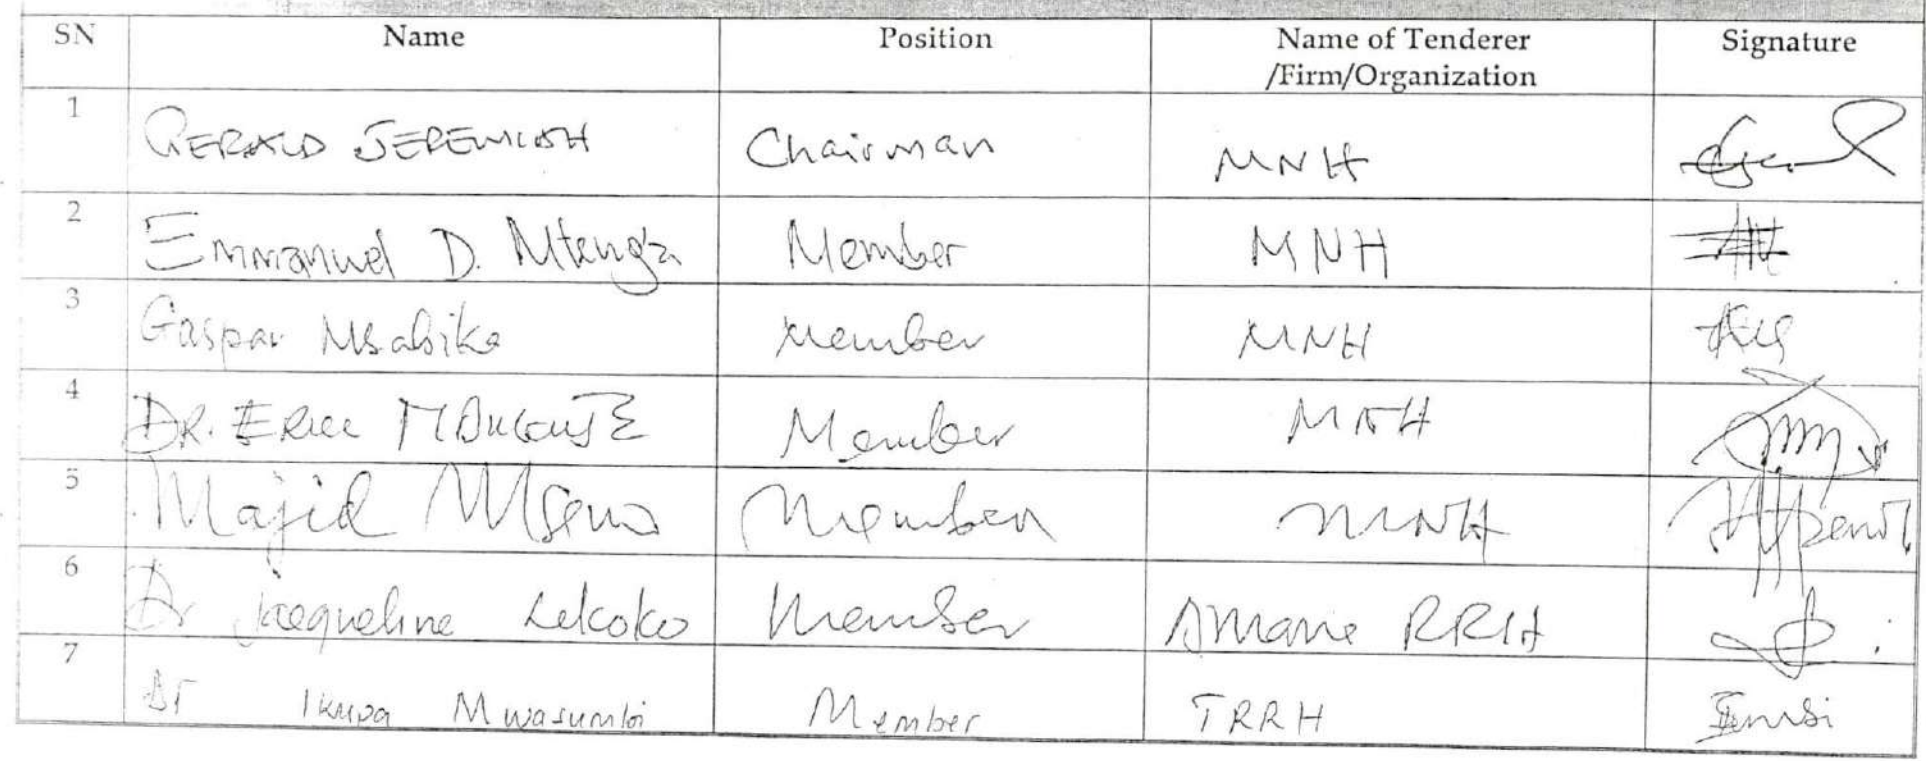 SN Name Position Name of Tenderer Signature
/Firm/Organization
1 GERALD JEREMIAH Chairman MNH
2 Emmanuel D. Mtenga Member MNH
3 Gaspar Msabika Member MNH
4 DR. ERIC Member MNH
5 Majid Member MNH
6 Dr Jacqueline Lekoko Member Amana RRH
7 Dr Ikupa Mwasumbi Member TRRH